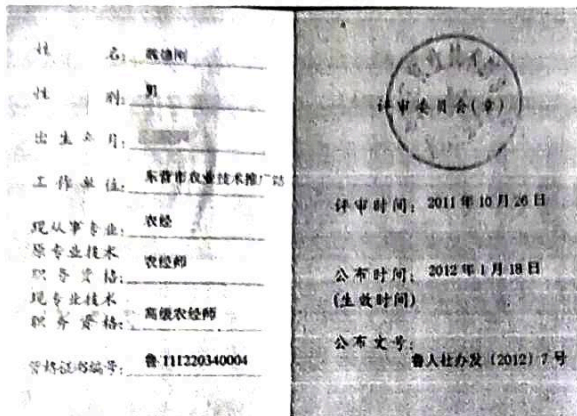 姓名:
性别: 男
出生年月:
工作单位: 东营市农业技术推广站
现从事专业: 农经
原专业技术
职务资格: 农经师
现专业技术
职务资格: 高级农经师
资格证书编号: 鲁 111220340004
评审委员会(章)
评审时间: 2011年10月26日
公布时间: 2012年1月18日
(生效时间)
公布文号:
鲁人社办发〔2012〕7号